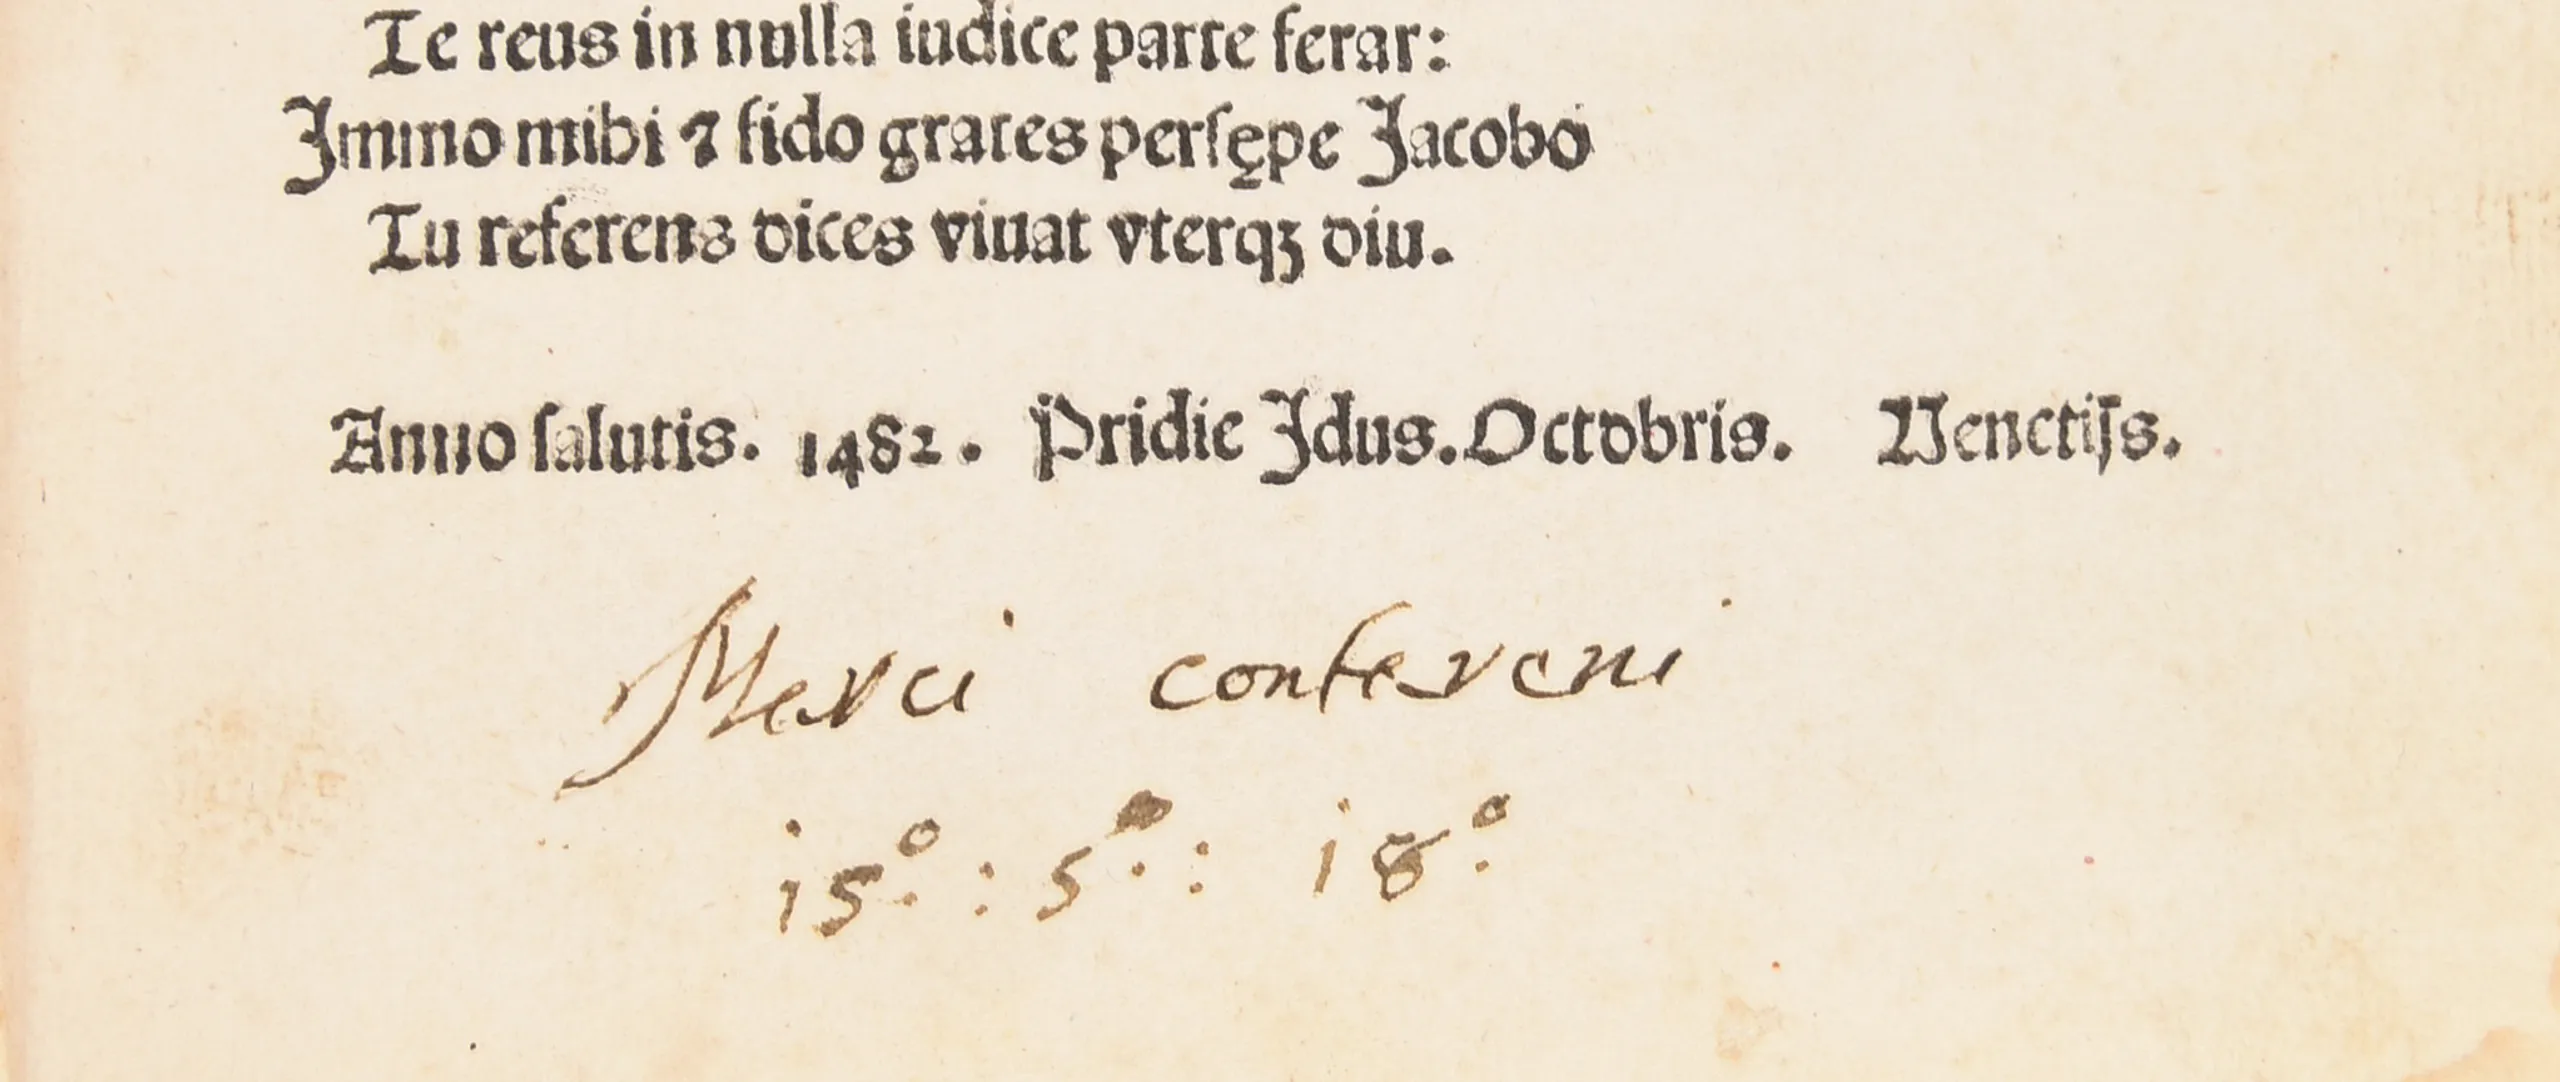 Te reus in nulla iudice parte ferar:
Immo mihi ⁊ fido grates persępe Jacobo
Tu referens dices viuat vterqꝫ diu.
Anno salutis. 1482. Pridie Idus. Octobris. Venetiis.
Merci contereni
15º : 5º : 18º